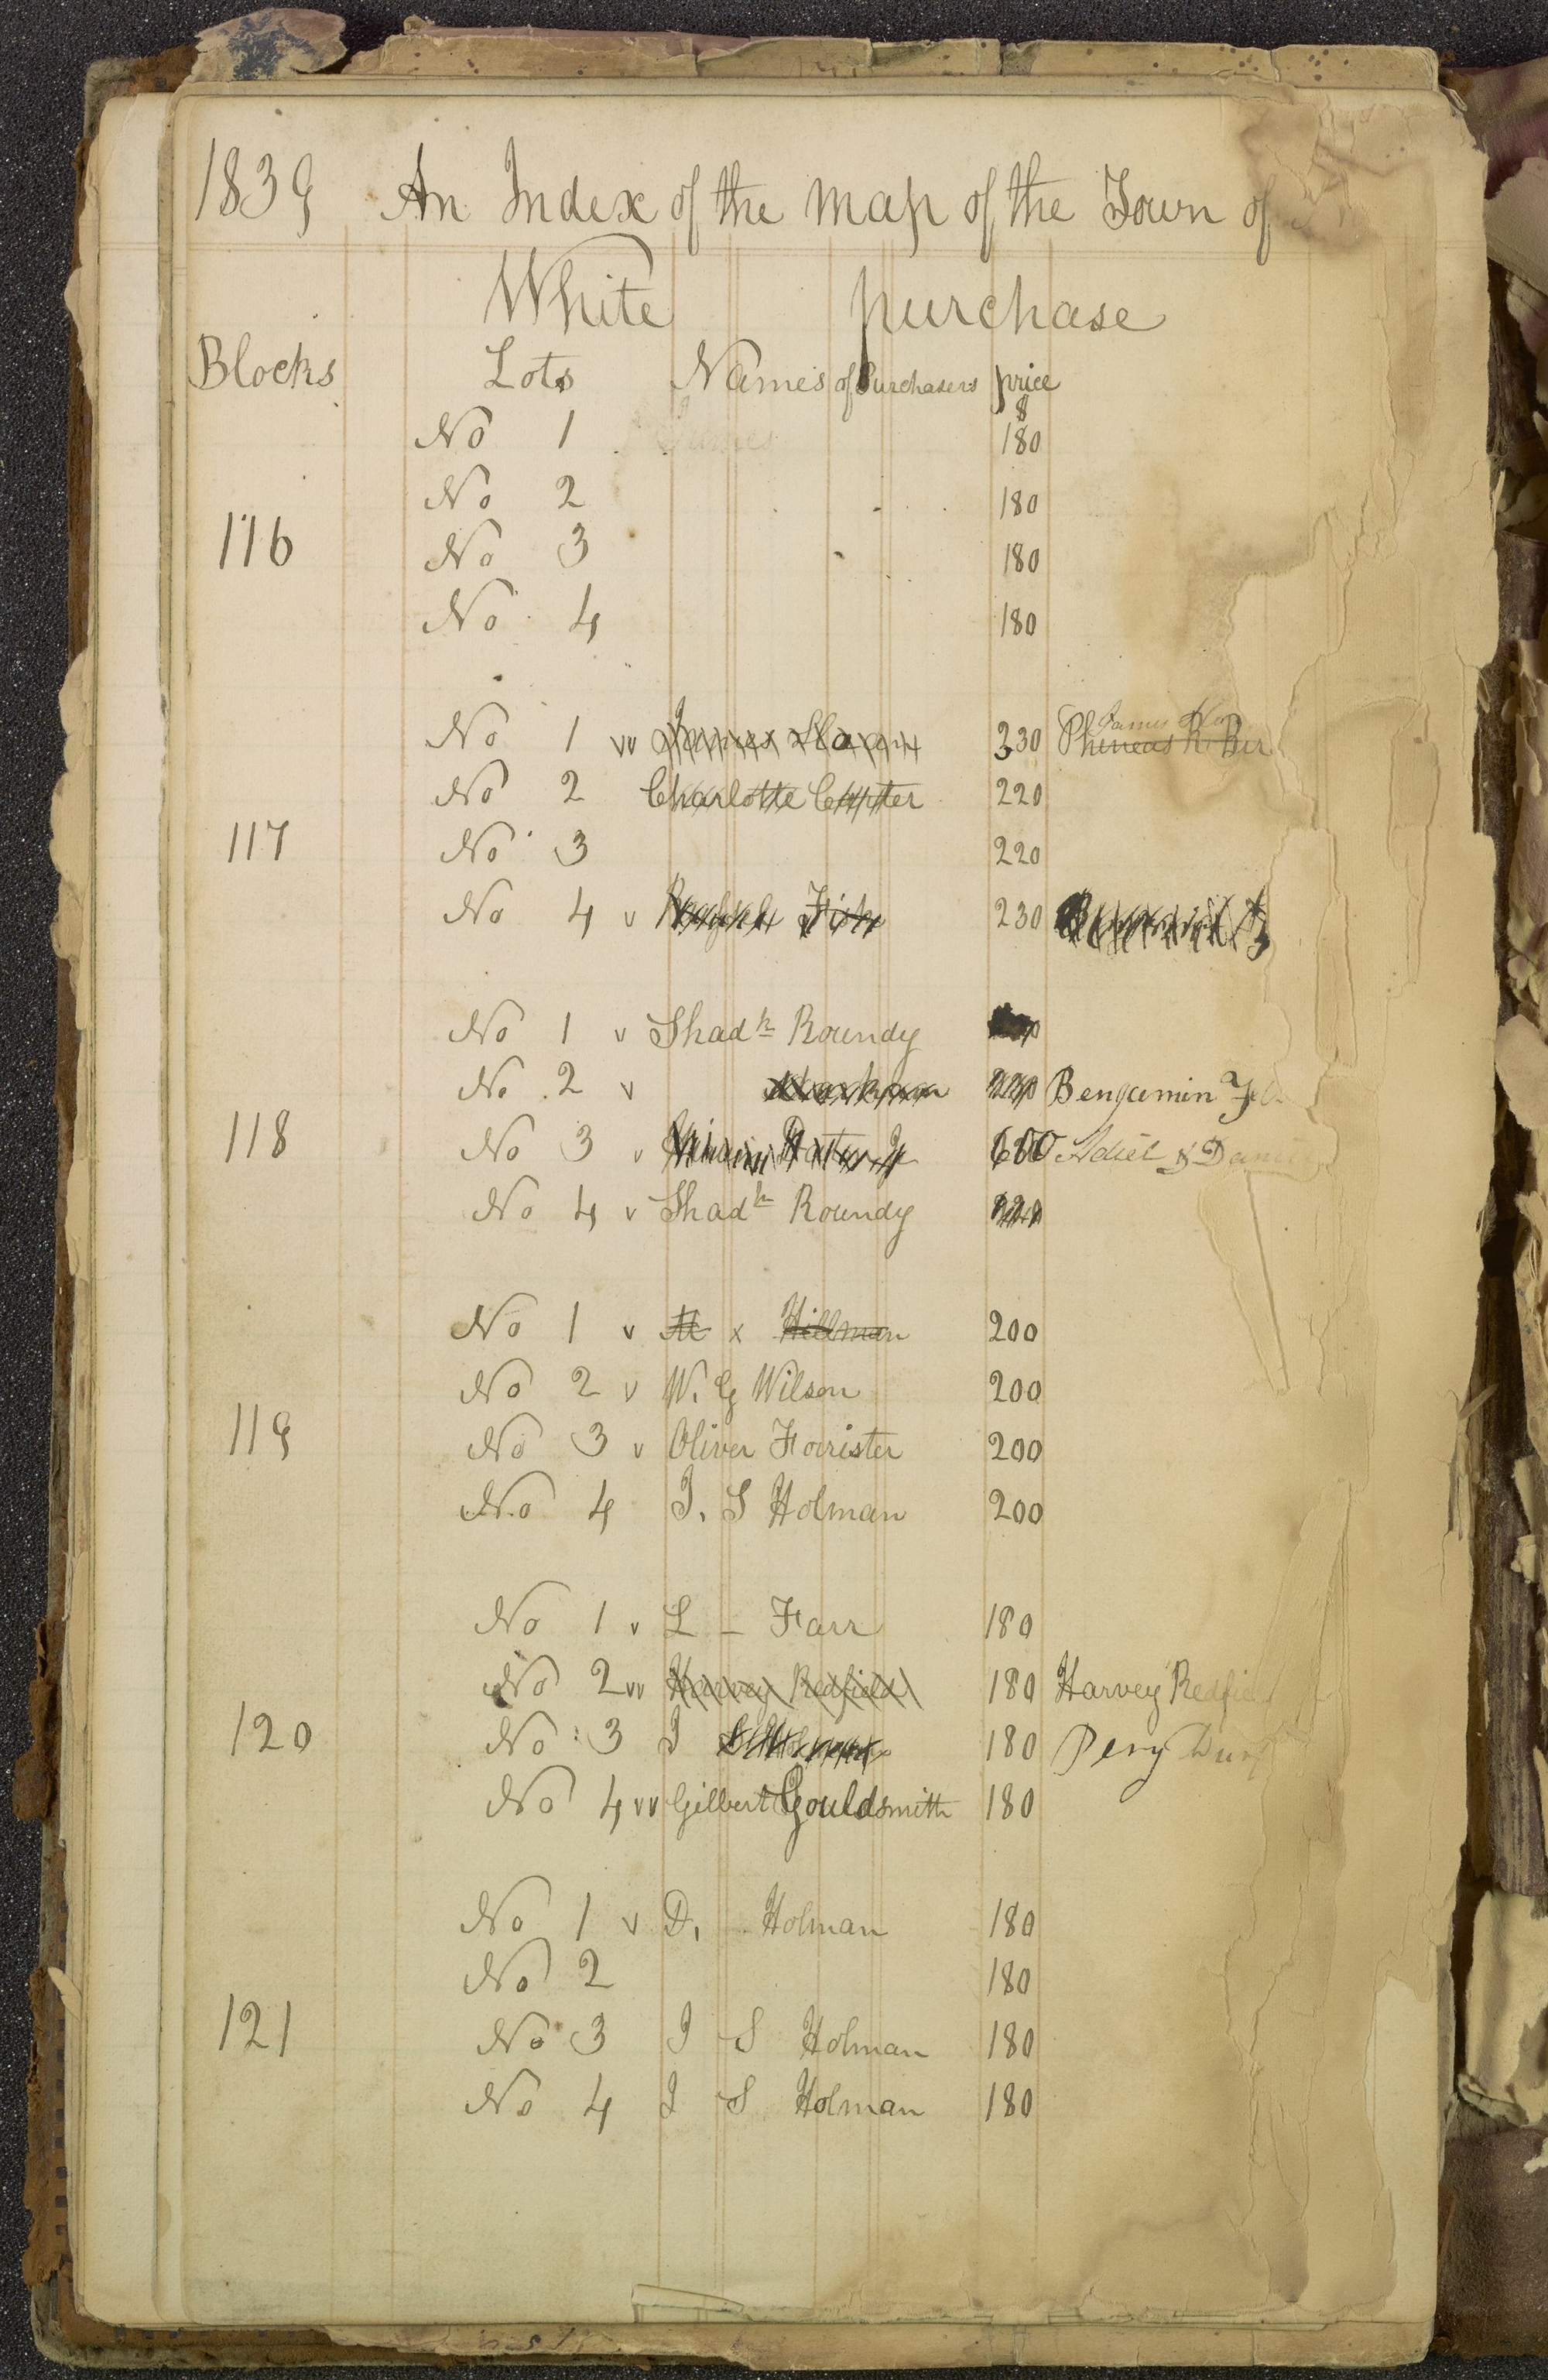 1839 An Index of the map of the Town of
White purchase
Blocks Lots Names of Purchasers price
$
No 1 James 180
No 2 180
116 No 3 180
No 4 180
James
No 1 vv James Sloan 230 Phineas R. Bir
No 2 Charlotte 220
117 No 3 220
No 4 v Fish 230
No 1 v Shadk Roundy
No 2 v 220 Bengamin
118 No 3 v 600 Adiel &
No 4 v Shadk Roundy 220
No 1 v M x Hillman 200
No 2 v W. G Wilson 200
119 No 3 v Oliver Forrister 200
No 4 J. S Holman 200
No 1 v L - Farr 180
No 2 vv Harvey Redfield 180 Harvey Redfie
120 No 3 J S Holman 180 Pery
No 4 vv Gilbert Gouldsmith 180
No 1 v D. Holman 180
No 2 180
121 No 3 J S Holman 180
No 4 J S Holman 180